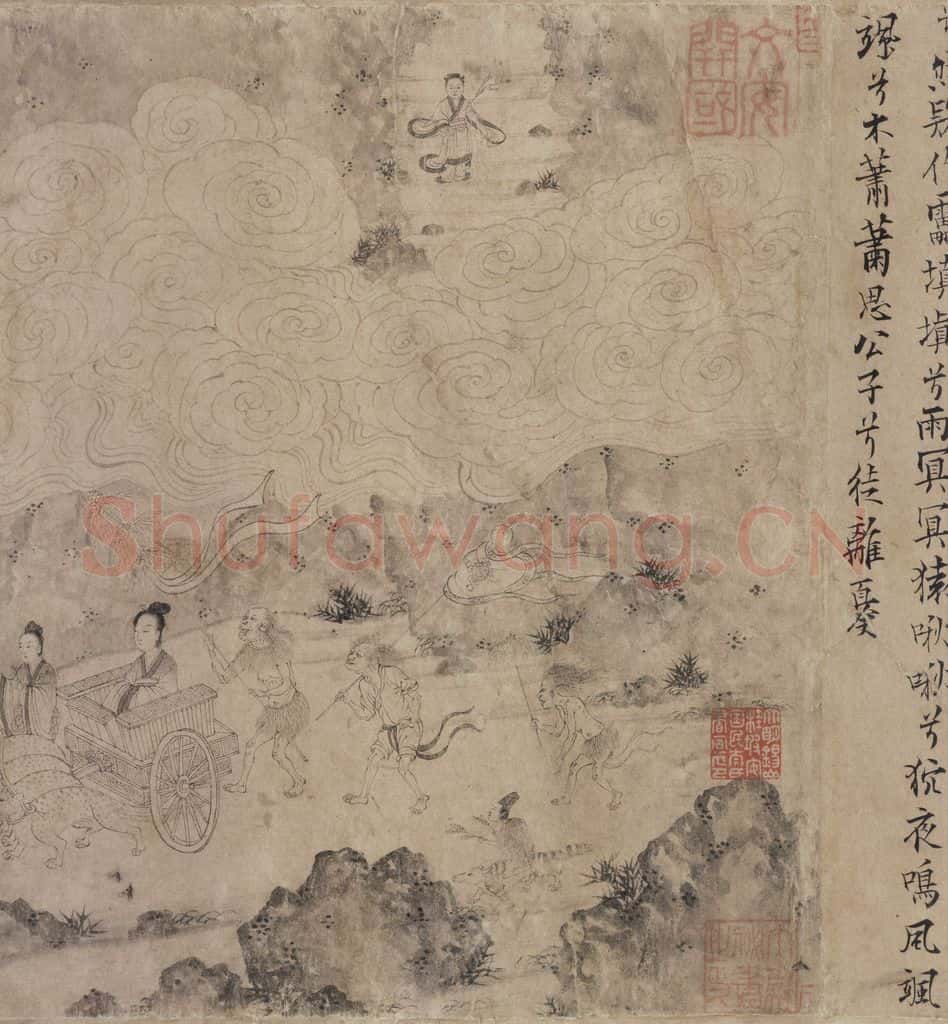 然疑作靁填填兮雨冥冥猿啾啾兮狖夜鳴風颯
颯兮木蕭蕭思公子兮徒離憂
Shufawang.CN